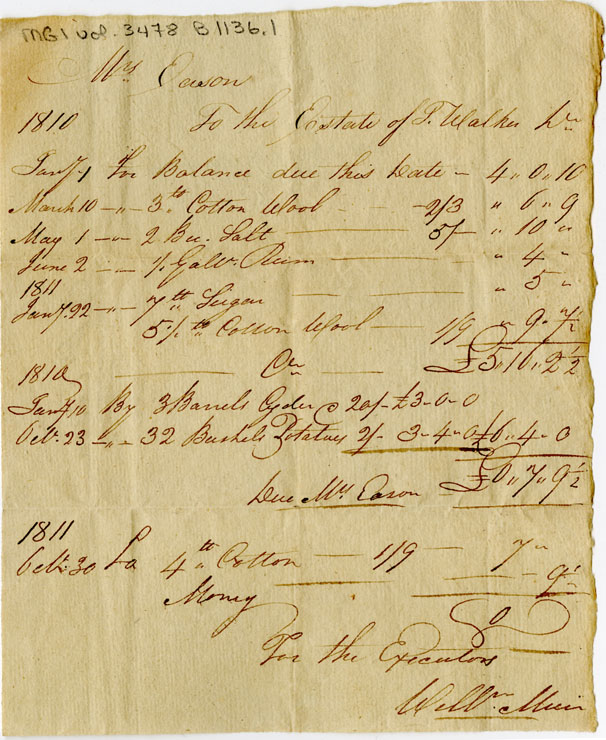 MG1 vol. 3478 B1136.1
Mr Eason
1810 To the Estate of T. Walker Dr
Jany 1 For Balance due this Date – 4 " 0 " 10
March 10 – " – 3 lb Cotton Wool – – 2/3 " 6 " 9
May 1 – " – 2 Bu. Salt 5/– " 10 "
June 2 – " – ½ Galn. Rum " 4 "
1811
Jany. 22 – " – 7 lb Sugar " 5 "
5½ lb Cotton Wool – 1/9 " 9 " 7½
Cr £5 " 16 " 2½
1810
Jany 10 By 3 Barrels Cyder @ 20/– £3–0–0
Octr. 23 – " – 32 Bushels Potatoes 2/– 3–4–0 £6 " 4 – 0
Due Mr Eason £0 " 7 " 9½
1811
Octr. 30 4 lb Cotton – 1/9 – 7 "
Money 9½
0
For the Executors
Willm. Muir